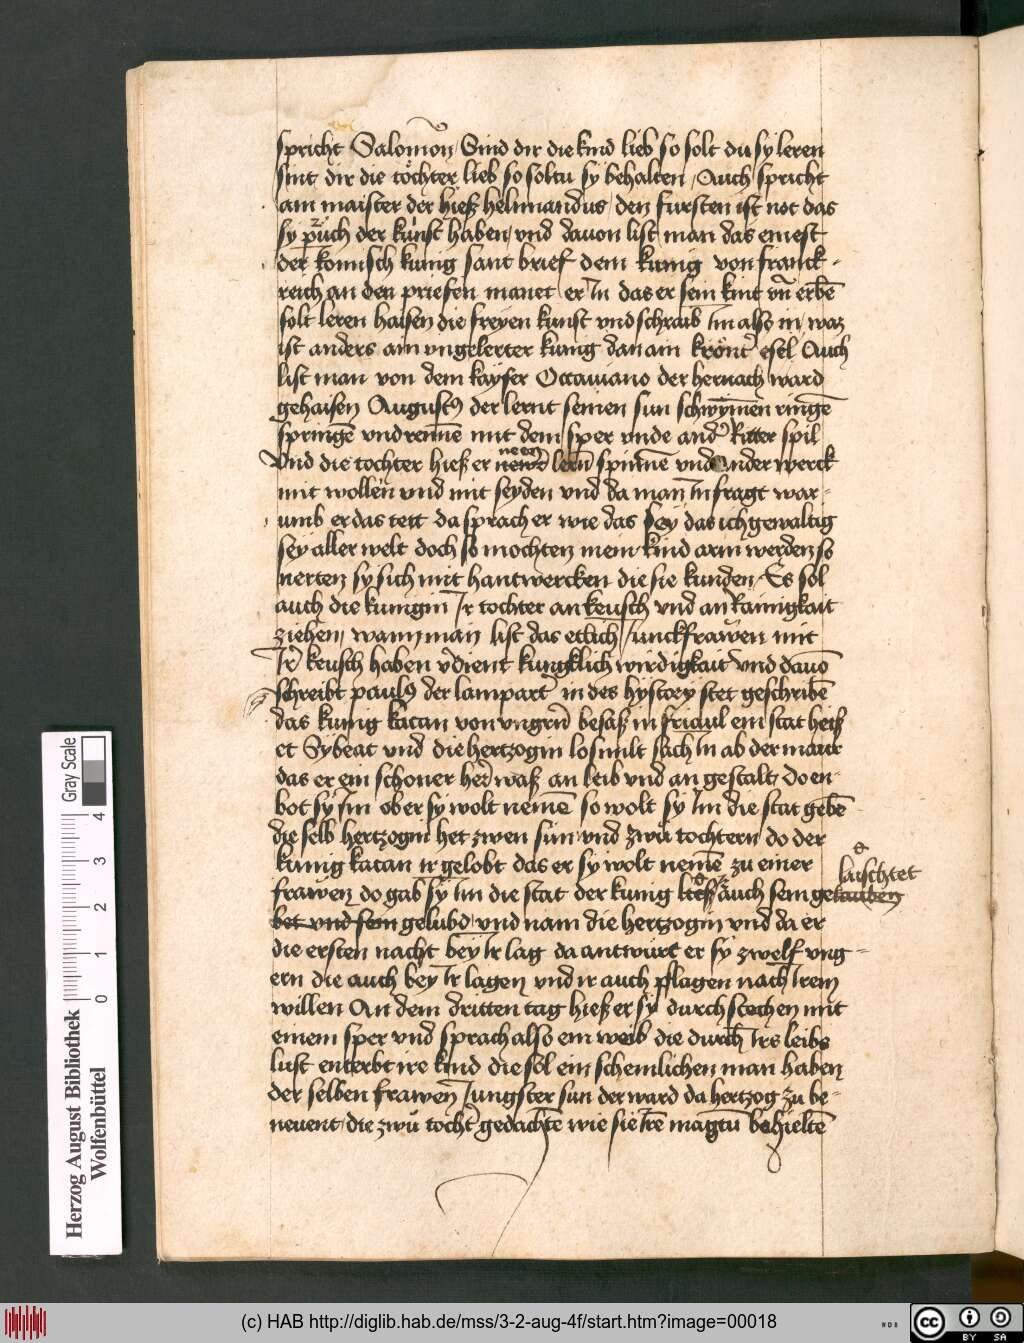 spricht Salomon / Sind dir die kind lieb so solt du sy leren
sint dir die töchter lieb so soltu sy behalten / Auch spricht
ain maister der hieß helinandus / den fursten ist not das
sy půch der kunst haben / vnd davon list man das einest
der komisch kunig sant brief dem kunig von franck-
reich an den priefen manet er In das er sein kint vn̄ erbē
solt leren haisen die freyen kunst vnd schraib Im also in / waz
ist anders ain vngelerter kunig dan ain krönt esel Auch
list man von dem kayser Octaviano der hernach ward
gehaisen August9 der lernt seinen sun schwÿmen ringē
springē vnd rennē mit dem sper vnde and Ritter spil
Vnd die tochter hieß er neen lern spinnē vnd ander werck
mit wollen vnd mit seyden vnd da man In fragt war-
umb er das tett da sprach er wie das sey das ich gewaltig
sey aller welt doch so mochten mein kind arm werden so
nerten sy sich mit hantwercken die sie kunden / Es sol
auch die kunigin Ir tochter an keusch vnd an Rainigkait
ziehen / wann man list das etlich Junckfrawen mit
Ir keusch haben vdient kungklich wirdigkait vnd davō
schreibt paul9 der lampart in des hystory stet geschribē
das kunig katan von vngrn besaß in friaul ein stat heiß
et Sybeat vnd die hertzogin losmilt sach In ab der maur
das er ein schoner her waß an leib vnd an gestalt / do en-
bot sy Im ob er sy wolt nemē so wolt sy Im die stat gebē
die selb hertzogin het zwen sün vnd zwu tochtern do der
kunig katan ir gelobt das er sy wolt nemē zu einer
frawen do gab sy Im die stat der kunig auch sein ge laischtet
bet vnd sein gelubd / vnd nam die hertzogin vnd da er
die ersten nacht bey Ir lag da antwurt er sy zwelf vng-
ern die auch bey Ir lagen vnd ir auch pflagen nach Irem
willen An dem dritten tag hieß er sy durch stechen mit
einem sper vnd sprach also ein weib die durch Irs leibs
lust enterbt ire kind die sol ein schemlichen man haben
der selben frawen Jungster sun der ward da hertzog zu be-
nevent / die zwu tocht gedachtē wie sie Ire magtū behieltē
Herzog August Bibliothek
Wolfenbüttel
0 1 2 3 4
Gray Scale
(c) HAB http://diglib.hab.de/mss/3-2-aug-4f/start.htm?image=00018
WDB
cc BY SA